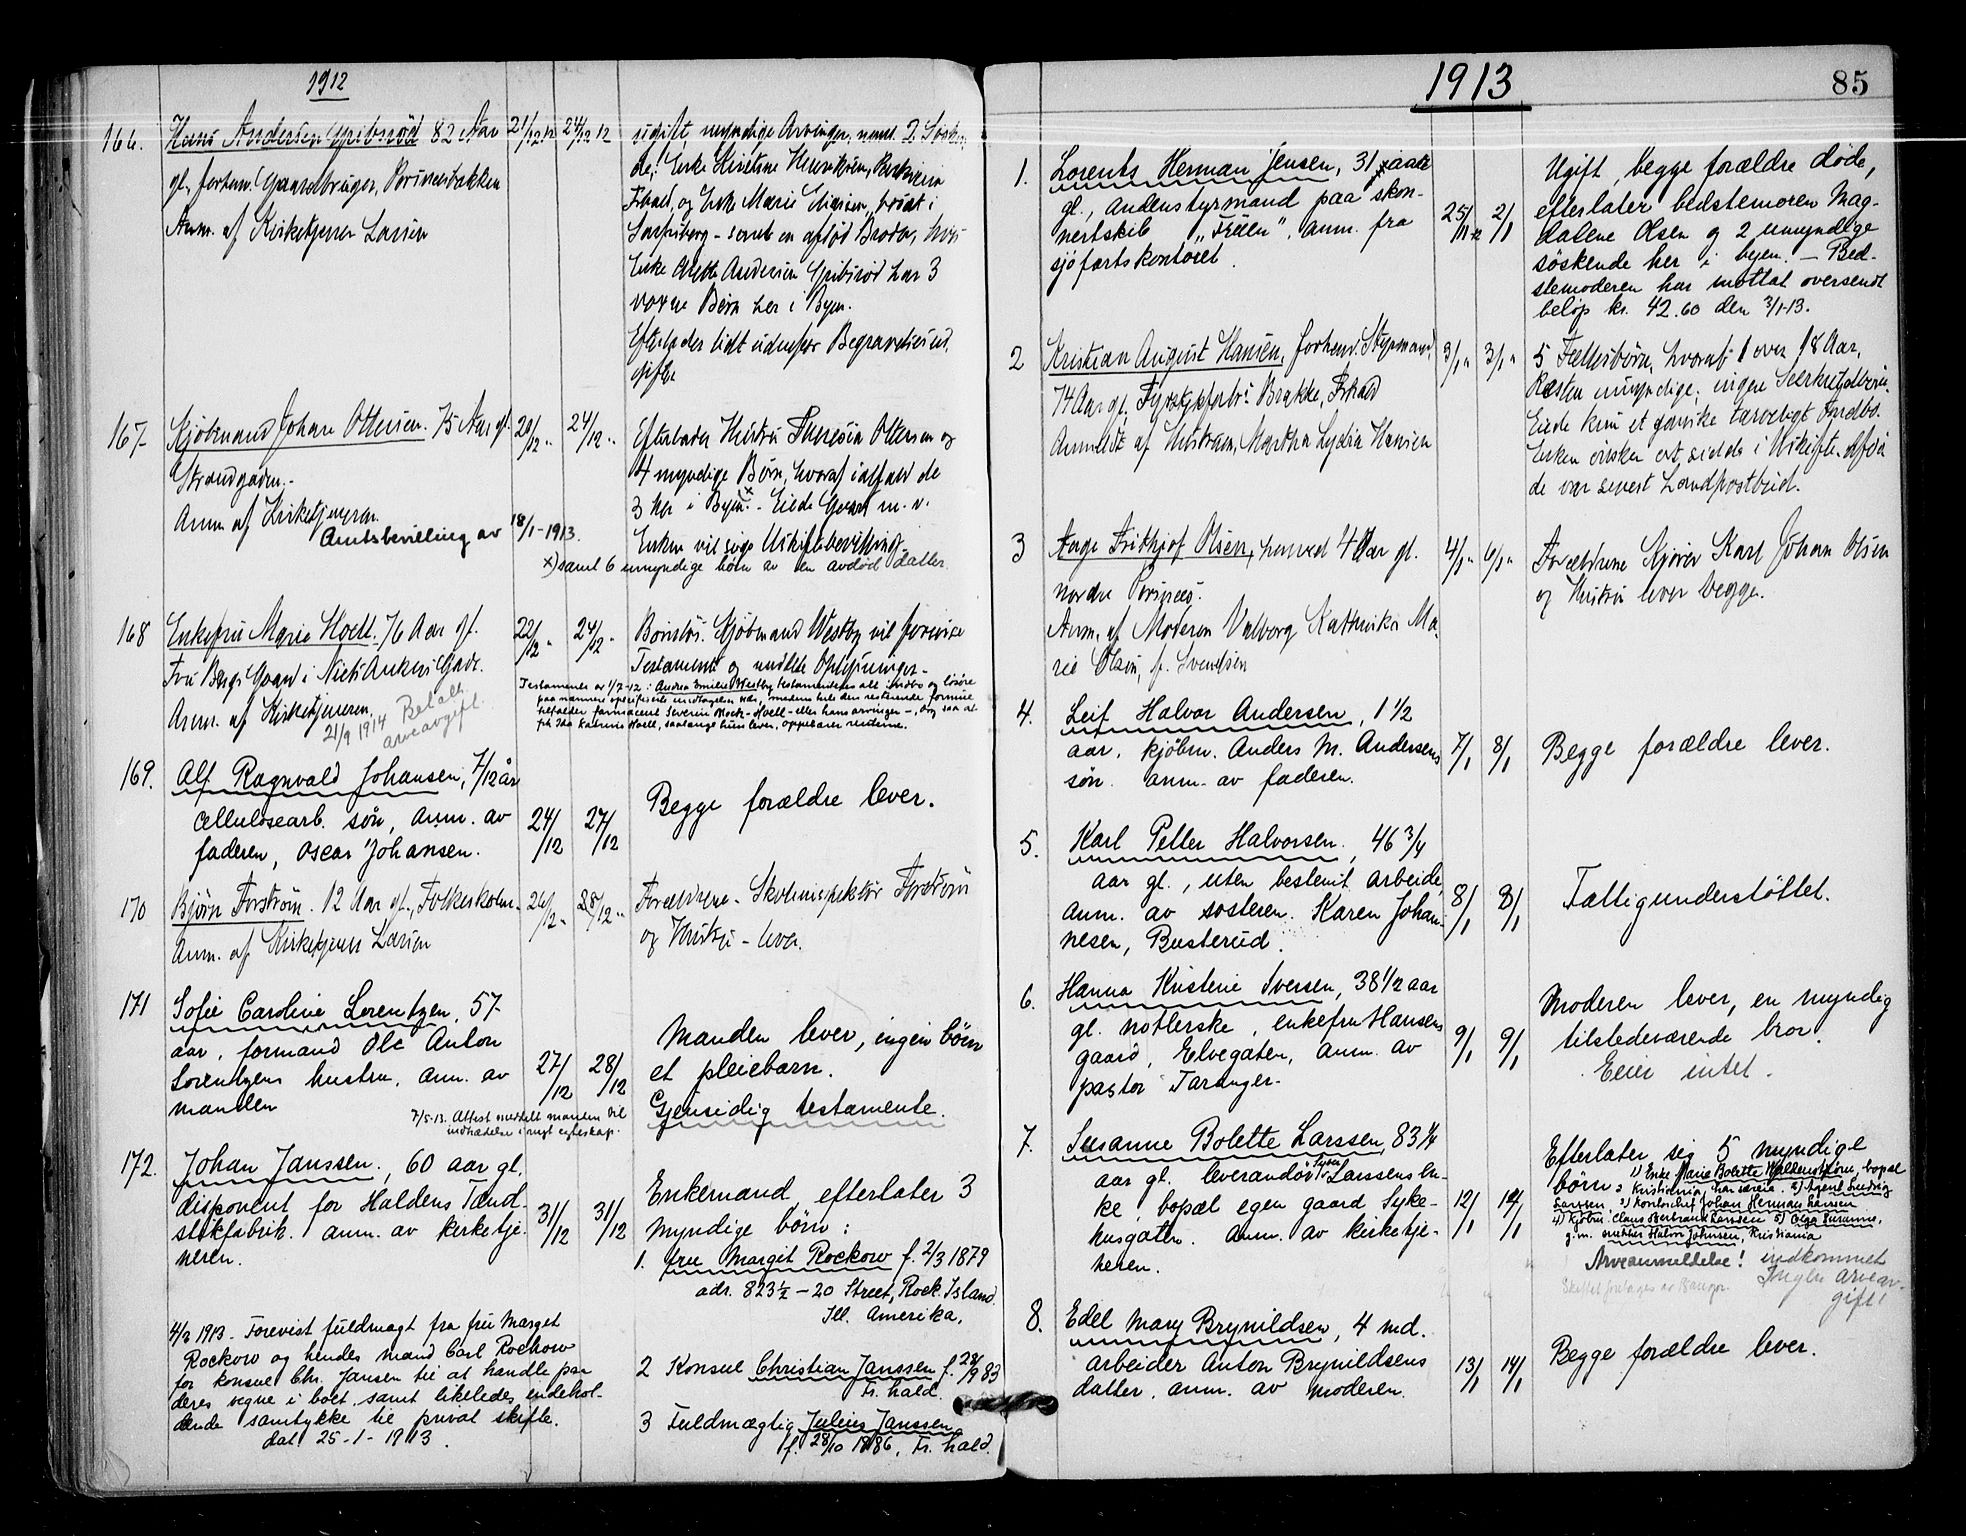 1912
166. Hans Andersen Gribsrød 82 Aar 21/12 12 24/12 12
gl. forhen. Gaardbruger, Porsnesbakken
Anm. af Kirketjener Larsen
ugift, myndige Arvinger, neml. 2 Søsken-
de: Enke Kirstine Henriksen,
F.hald, og Enke Marie Nielsen, bosat i
Sarpsborg – samt en afdød Broder, hvis
Enke Anette Andersen Gribsrød har 3
voxne Børn her i Byen.
Efterlader lidt udenfor Begravelsesud-
gifter
167. Kjøbmand Johan Ottersen. 75 Aar gl. 20/12 " 24/12 "
Strandgaden.-
Anm. af Kirketjeneren
Amtsbevilling av 18/1-1913.
Efterlader Hustru Theresia Ottersen og
4 myndige Børn, hvoraf ialfald de
3 her i Byen. x - Eiede Gaard m.v.
Enken vil søge Uskiftebevilling
x) samt 6 umyndige børn av en avdød datter.
168 Enkefru Marie Hoell. 76 Aar gl. 22/12 " 24/12 "
Fru Bergs Gaard i Niels Ankers Gade.
Anm. af Kirketjeneren.
21/9 1914 Betalt
arveavgift.
Barnløs. Kjøbmand Westby vil forevise
Testamente og meddele Oplysninger.-
Testamente av 1/7-12: Andrea Emilie Westby testamenteres alt indbo og løsøre
paa nærmere specificerte undtagelser nær, medens hele den resterende formue
tilfalder farmaceut Severin Hoch-Hoell - eller hans arvinger -, dog saa at
frk Ida Katrine Hoell, saalænge hun lever, oppebærer renterne.
169. Alf Ragnvald Johansen, 7/12 år
cellulosearb. søn, anm. av
faderen, Oscar Johansen.
24/12 27/12
Begge forældre lever.
170 Bjørn Forstrøm. 12 Aar gl., Folkeskolen. 26/12 " 28/12 "
Anm. af Kirketjener Larsen
Forældrene - Skoleinspektør Forstrøm
og Hustru - lever.
171 Sofie Caroline Lorentzen, 57
aar, formand Ole Anton
Lorentzens hustru, anm. av
manden
27/12 28/12
7/5-13. Attest meddelt manden til
indtrædelse i nyt egteskap.
Manden lever, ingen børn
et pleiebarn.
Gjensidig testamente.
172. Johan Janssen, 60 aar gl.
disponent for Haldens Tænd-
stikfabrik. anm. av kirketje-
neren.
31/12 31/12
Enkemand, efterlater 3
myndige børn:
1. fru Margit Rockow f. 2/3 1879
adr. 823 1/2 – 20 Street, Rock Island.
Ill. Amerika.
2 Konsul Christian Janssen f. 28/9 83
Fr. hald.
3 Fuldmægtig Julius Janssen
f. 28/10 1886, Fr. hald.
4/2 1913. Forevist fuldmagt fra fru Marget
Rockow og hendes mand Carl Rockow
for konsul Chr. Jansen til at handle paa
deres vegne i boet, samt likeledes indehol-
dende samtykke til privat skifte.
dat. 25-1-1913.
1913
85
1. Lorents Herman Jensen, 31 aar
gl., andenstyrmand paa skon-
nertskib "Fellen". anm. fra
sjøfartskontoret.
25/11 12 2/1
Ugift, begge forældre døde,
efterlater bedstemoren Mag-
dalene Olsen og 2 umyndige
søskende her i byen. – Bed-
stemoderen har mottat oversendt
beløp kr. 42.60 den 3/1-13.
2 Kristian August Hansen, forhenv. Styrmand, 3/1 " 3/1 "
74 Aar gl., Brække, F.hald
Anmeldt af Hustruen, Martha Lydia Hansen
5 Fællesbørn, hvoraf 1 over 18 Aar,
Resten umyndige; ingen Særkuldbørn.
Eiede kun et ganske tarveligt Indbo.
Enken ønsker at sidde i Uskifte. Afdø-
de var senest Landpostbud.
3 Aage Frithjof Olsen, henved 4 Aar gl. 4/1 " 6/1 "
nordre Porsnes.
Anm. af Moderen Valborg Kathinka Ma-
rie Olsen, f. Svendsen
Forældrene Kjører Karl Johan Olsen
og Hustru lever begge.
4. Leif Halvor Andersen, 1 1/2
aar, kjøbm. Anders M. Andersens
søn. anm. av faderen.
7/1 8/1
Begge forældre lever.
5. Karl Petter Halvorsen, 46 3/4
aar gl., uten bestemt arbeide,
anm. av søsteren. Karen Johan-
nesen, Busterud.
8/1 8/1
Fattigunderstøttet.
6. Hanna Kristine Iversen, 38 1/2 aar
gl. notlerske, enkefru Hansens
gaard, Elvegaten, anm. av
pastor Taranger.
9/1 9/1
Moderen lever, en myndig
tilstedeværende bror.
Eier intet.
7. Susanne Bolette Larssen, 83 1/4
aar gl. leverandør Larssens en-
ke, bopæl egen gaard, Syke-
husgaten. Anm. av kirketje-
neren.
12/1 14/1
Efterlater sig 5 myndige
børn: 1) Enke Marie Bolette, bopæl
Kristiania, 2) Agent Ludvig
Larssen, 3) Kontorchef Johan Herman Larssen
4) Kjøbm. Claus Bertrand Larssen 5) Olga Susanne,
g.m. Halvor Johnsen, Kristiania
Arveanmeldelse! indkommet
Ingen arveav-
gift!
8. Edel Mary Brynildsen, 4 md.
arbeider Anton Brynildsens
datter. anm. av moderen.
13/1 14/1
Begge forældre lever.